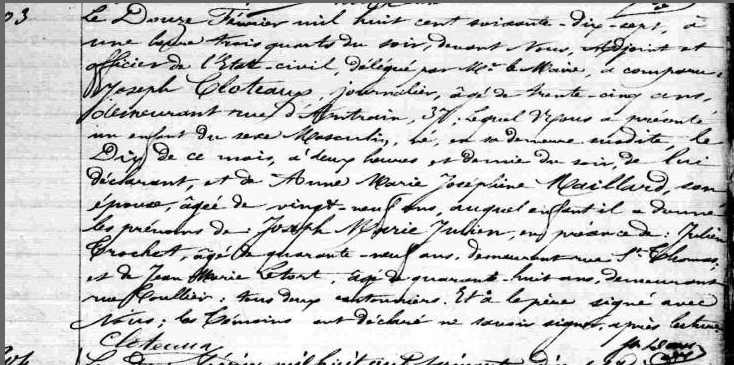 03
Le Douze Février mil huit cent soixante-dix-sept, à
une heure trois quarts du soir, devant Nous, Adjoint et
officier de l'Etat-civil, délégué par Mr. le Maire, a comparu:
Joseph Cloteaux, journalier, âgé de trente-cinq ans,
demeurant rue d'Antrain, 37; lequel Nous a présenté
un enfant du sexe Masculin, né, en sa demeure susdite, le
Dix de ce mois, à deux heures et demie du soir, de lui
déclarant, et de Anne Marie Joséphine Maillard, son
épouse, âgée de vingt-neuf ans, auquel enfant il a donné
les prénoms de: Joseph Marie Julien, en présence de: Julien
Crochet, âgé de quarante-neuf ans, demeurant rue St. Thomas,
et de Jean Marie Letort, âgé de quarante-huit ans, demeurant
rue; tous deux cantonniers. Et a le père signé avec
Nous; les Témoins ont déclaré ne savoir signer, après lecture
Cloteaux